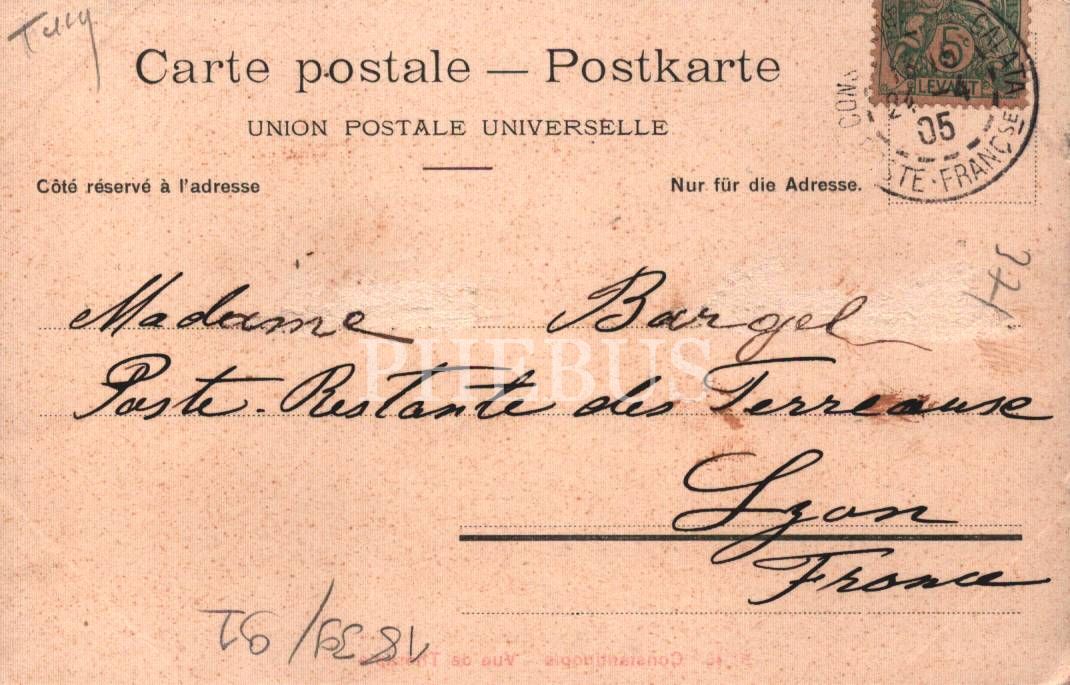 Carte postale — Postkarte
UNION POSTALE UNIVERSELLE
Côté réservé à l'adresse
Nur für die Adresse.
5c
LEVANT
GALATA
24
05
POSTE FRANÇSE
Madame Bargel
Poste-Restante des Terreause
Lyon
France
PHEBUS
371
1839/92
Constantinople - Vue de